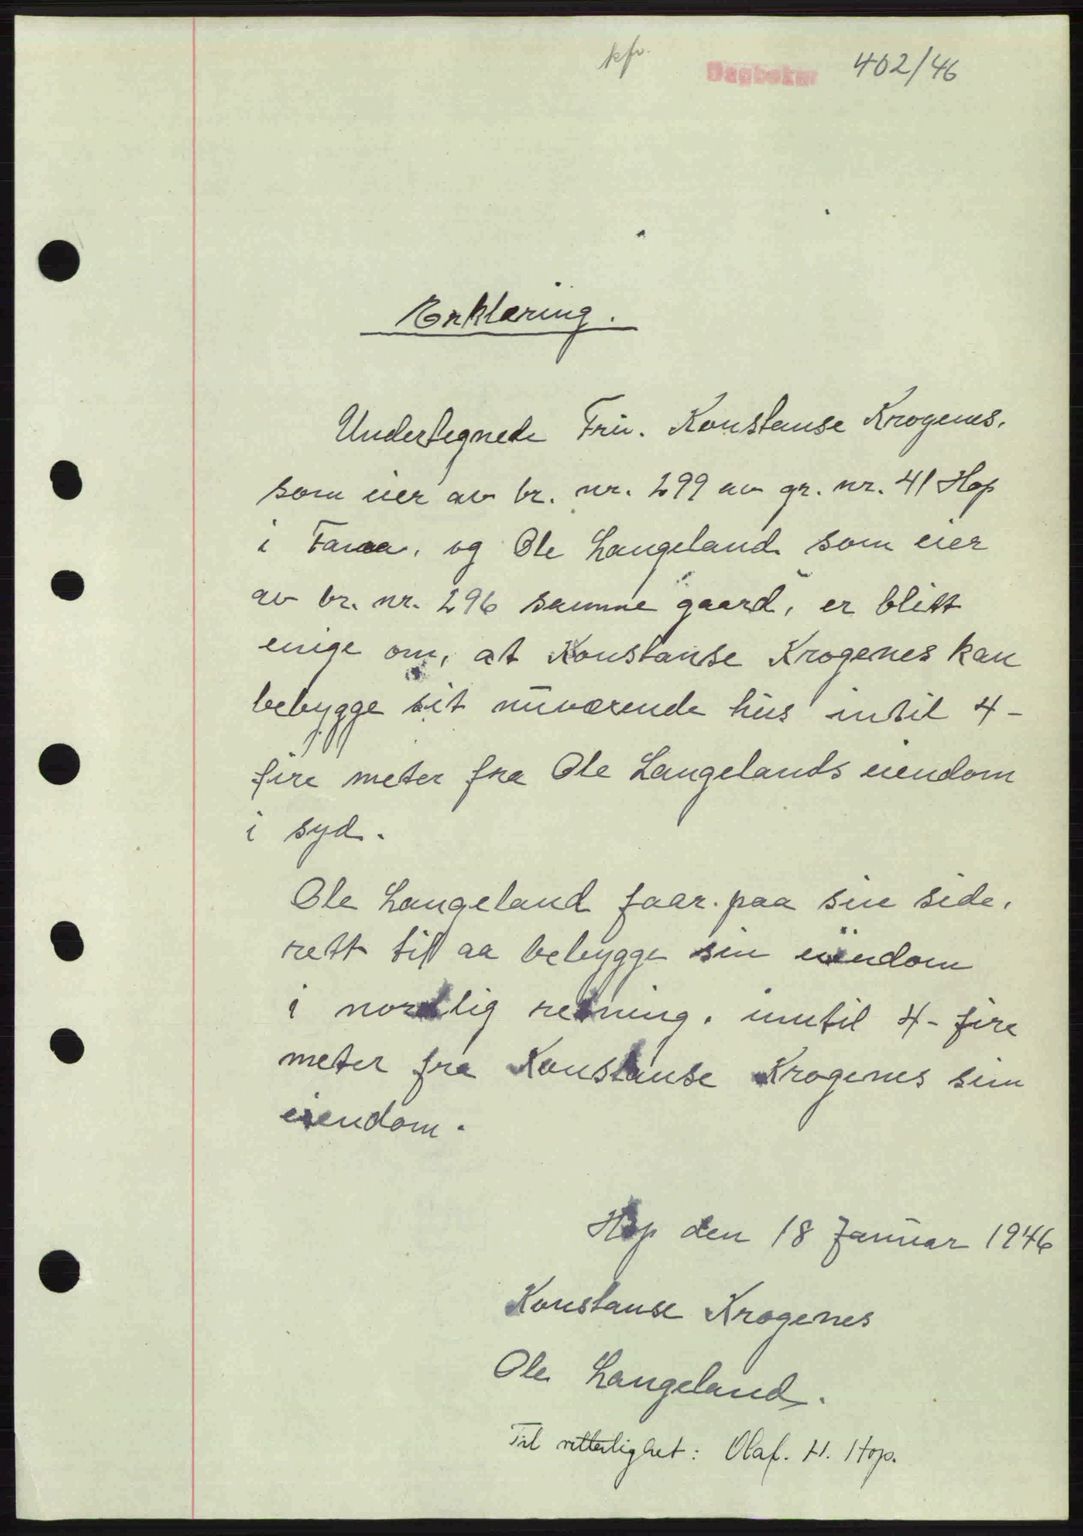 kfr.
Dagboknr 402/46
Erklæring.
Undertegnede Fru. Konstanse Krogenes.
som eier av br. nr. 299 av gr. nr. 41 Hop
i Fanaa, og Ole Langeland som eier
av br. nr. 296 samme "gaard", er blitt
enige om, at Konstanse Krogenes kan
bebygge sit nuværende hus intil 4-
fire meter fra Ole Langelands eiendom
i syd.
Ole Langeland faar. paa sin side,
rett til aa bebygge sin eiendom
i nordlig retning, inntil 4- fire
meter fra Konstanse Krogenes sin
eiendom.
Hop den 18 Januar 1946
Konstanse Krogenes
Ole Langeland.
Til vitterlighet: Olaf. H. Hop.